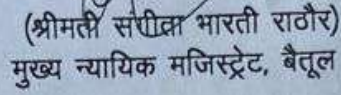 (श्रीमती संगीता भारती राठौर)
मुख्य न्यायिक मजिस्ट्रेट, बैतूल